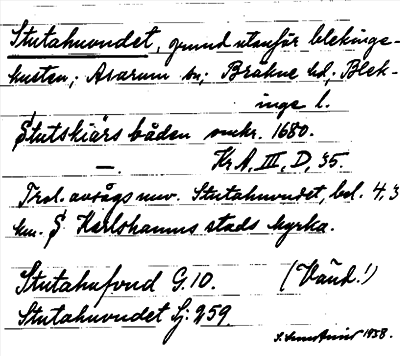 Stutahuvudet, grund utanför blekinge-
kusten; Asarum sn; Bräkne hd; Blek-
inge l.
Stutskiärs båden omkr. 1680.
—. Kr.A, III, D, 35.
Trol. avsågs nuv. Stutahuvudet, bel. 4,3
km. S Karlshamns stads kyrka.
Stutahufvud G.10. (Vänd!)
Stutahuvudet Sj: 259.
1938.